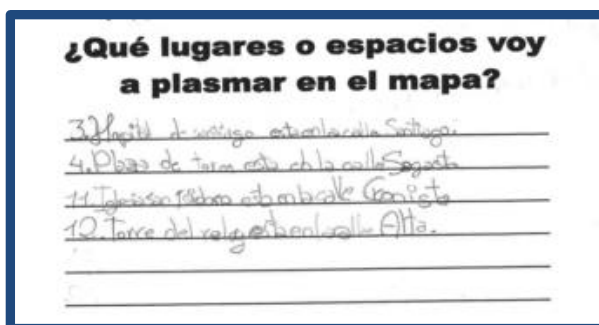 ¿Qué lugares o espacios voy
a plasmar en el mapa?
3. Hospital de santiago esta en la calle Santiago.
4. Plaza de toros esta en la calle Sagasta
11. Iglesia san isidoro esta en la calle Cronista
12. Torre del reloj esta en la calle Alta.